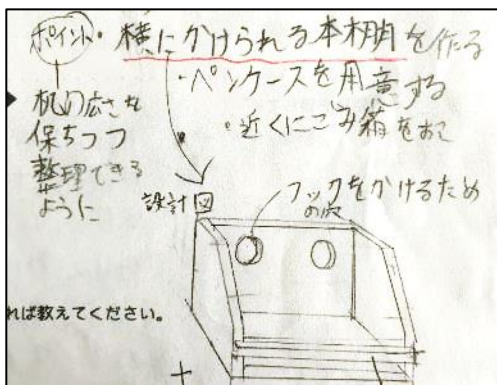 ポイント・横にかけられる本棚を作る
・ペンケースを用意する
・近くにごみ箱をおく
机の広さを
保ちつつ
整理できる
ように
設計図
フックをかけるため
の穴
れば教えてください。